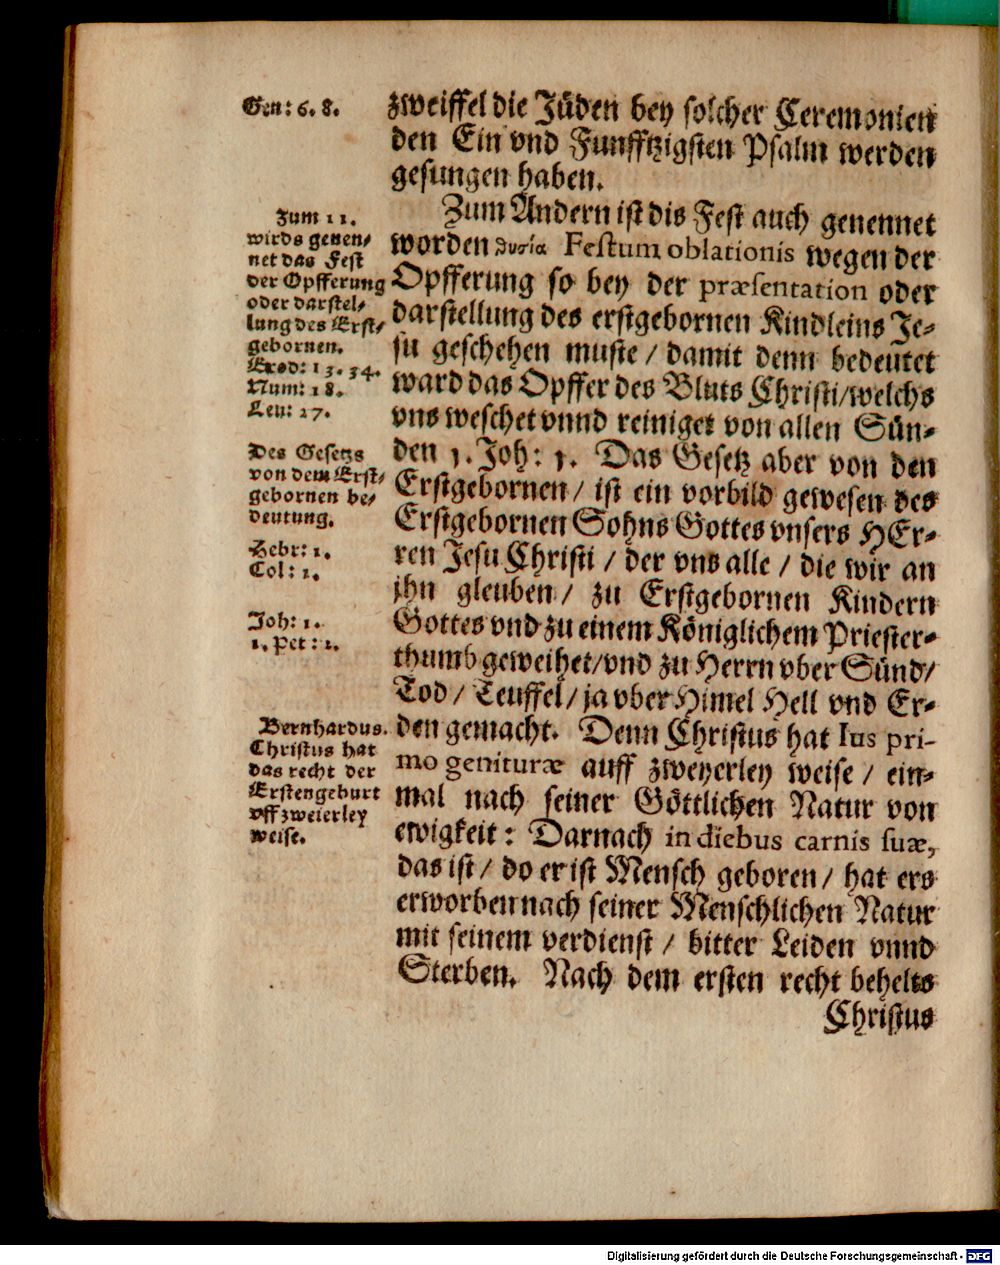 Gen: 6. 8.
zweiffel die Jüden bey solcher Ceremonien
den Ein vnd Funfftzigsten Psalm werden
gesungen haben.
Zum 11.
wirds genen/
net das Fest
der Opfferung
oder darstel/
lung des Erst/
gebornen.
Exod: 13. 34.
Num: 18.
Leu: 27.
Zum Andern ist dis Fest auch genennet
worden θυσία Festum oblationis wegen der
Opfferung so bey der præsentation oder
darstellung des erstgebornen Kindleins Je-
su geschehen muste / damit denn bedeutet
ward das Opffer des Bluts Christi/welchs
vns weschet vnnd reiniget von allen Sün-
den 1. Joh: 1. Das Gesetz aber von den
Des Gesetzs
von dem Erst/
gebornen be/
deutung.
Erstgebornen / ist ein vorbild gewesen des
Erstgebornen Sohns Gottes vnsers HEr-
Hebr: 1.
Col: 1.
ren Jesu Christi / der vns alle / die wir an
jhn gleuben / zu Erstgebornen Kindern
Joh: 1.
1. Pet: 2.
Gottes vnd zu einem Königlichem Priester-
thumb geweihet/vnd zu Herrn vber Sünd/
Tod / Teuffel / ja vber Himel Hell vnd Er-
Bernhardus.
Christus hat
das recht der
Erstengeburt
vff zweierley
weise.
den gemacht. Denn Christus hat Ius pri-
mo genituræ auff zweyerley weise / ein-
mal nach seiner Göttlichen Natur von
ewigkeit: Darnach in diebus carnis suæ,
das ist / do er ist Mensch geboren / hat ers
erworben nach seiner Menschlichen Natur
mit seinem verdienst / bitter Leiden vnnd
Sterben. Nach dem ersten recht behelts
Christus
Digitalisierung gefördert durch die Deutsche Forschungsgemeinschaft - DFG